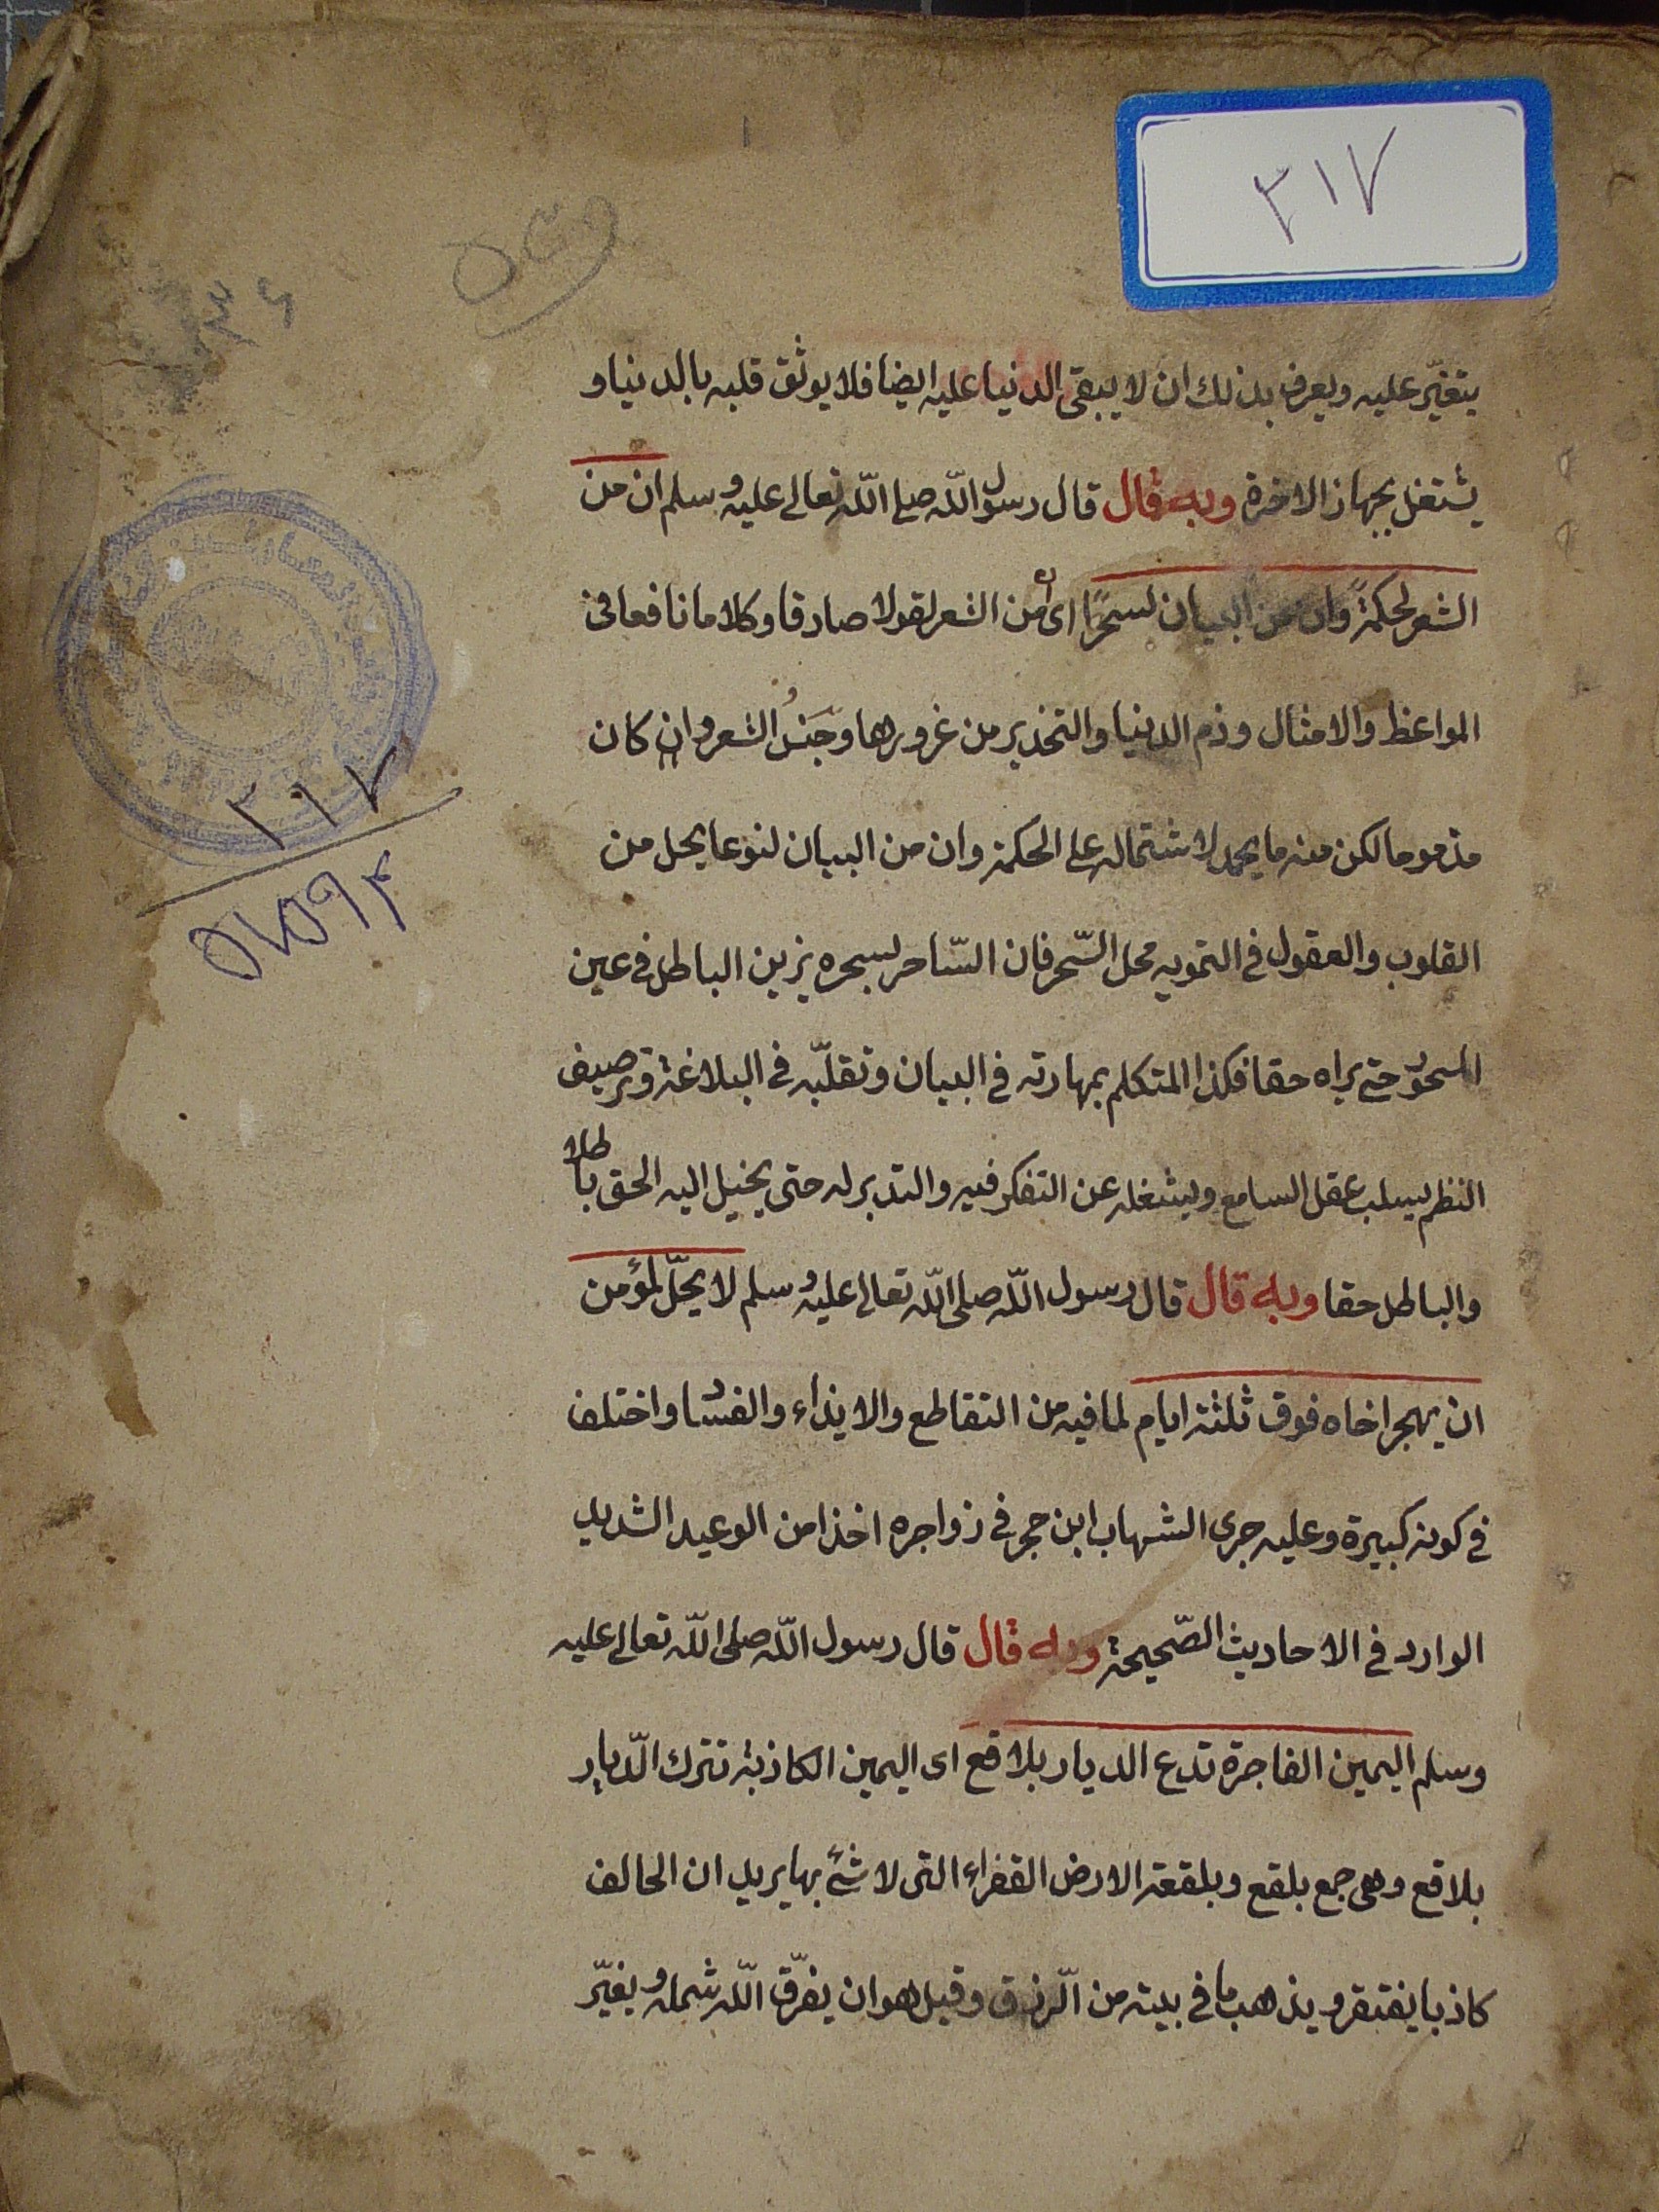 ٣١٧
يتغيّر عليه ويعرف بذلك ان لا يبقى الدنيا عليه ايضا فلا يوثق قلبه بالدنيا و
يشتغل بجهاز الاخرة وبه قال قال رسول اللّه صلى اللّه تعالى عليه وسلم ان من
الشعر لحكمةً وان من البيان لسحرًا اى ان من الشعر لقولا صادقا وكلاما نافعا فى
المواعظ والامثال وذم الدنيا والتحذير من غرورها وجنس الشعر وان كان
مذموما لكن منه ما يحمد لاشتماله على الحكمة وان من البيان لنوعا يحل من
القلوب والعقول فى التمويه محل السّحر فان السّاحر لسحره يزين الباطل فى عين
المسحور حتى يراه حقا فكذا المتكلم بمهارته فى البيان وتقلّبه فى البلاغة وترصيف
النظم يسلب عقل السامع ويشغله عن التفكر فيه والتدبر له حتى يخيل اليه الحق باطلا
والباطل حقا وبه قال قال رسول اللّه صلى اللّه تعالى عليه وسلم لا يحلّ لمؤمن
ان يهجر اخاه فوق ثلثة ايام لما فيه من التقاطع والايذاء والفساد واختلف
فى كونه كبيرة وعليه جرى الشهاب ابن حجر فى زواجره اخذا من الوعيد الشديد
الوارد فى الاحاديث الصّحيحة وبه قال قال رسول اللّه صلى اللّه تعالى عليه
وسلم اليمين الفاجرة تدع الديار بلاقع اى اليمين الكاذبة تترك الدّيار
بلاقع وهى جمع بلقع وبلقعة الارض القفراء التى لا شئ بها يريد ان الحالف
كاذبا يفتقر ويذهب ما فى بيته من الرّزق وقيل هو ان يفرّق اللّه شمله ويغيّر
٣١٧